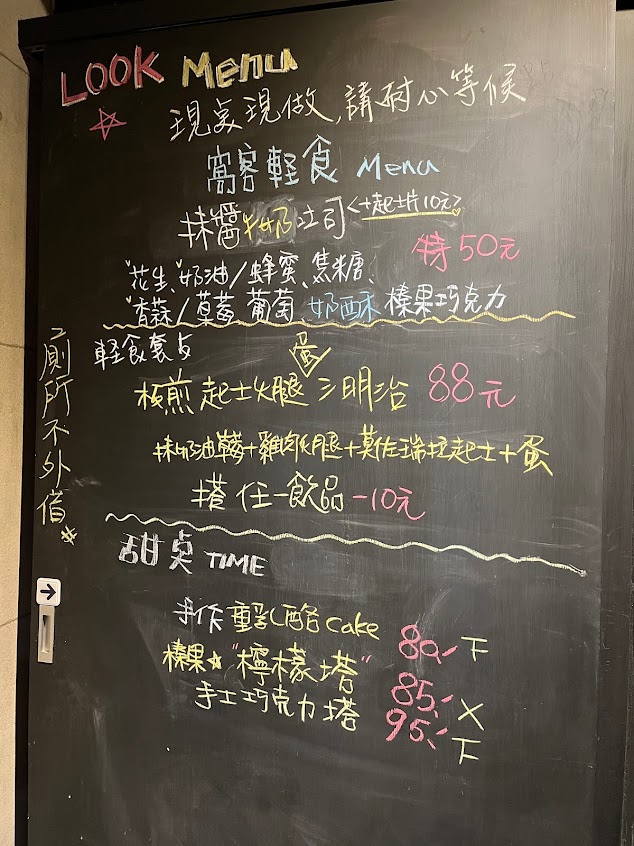 LOOK Menu
現桌現做,請耐心等候
窩客輕食 Menu
抹醬牛奶吐司<+起士片10元>
特50元
花生、奶油/蜂蜜、焦糖、
香蒜/草莓 葡萄、奶酥 榛果巧克力
輕食套
蛋
板煎起士火腿三明治 88元
+雞肉火腿+莫佐瑞拉起士+蛋
搭任一飲品-10元
甜桌 TIME
手作 重乳酪 Cake 80.- 下
榛果☆"檸檬塔" 85.- X
手工巧克力塔 95.- 下
廁所不外借